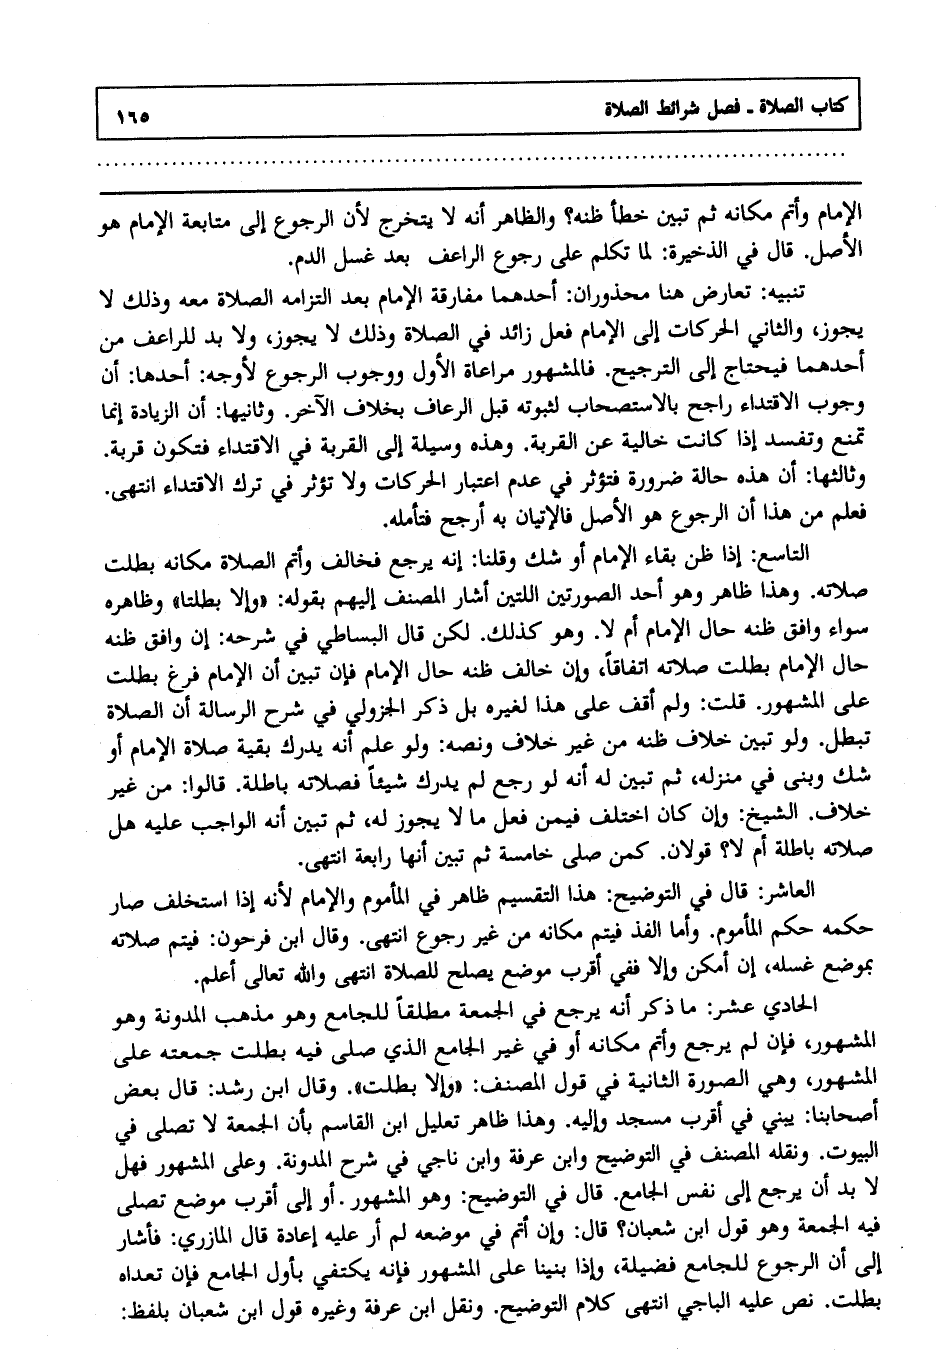 كتاب الصلاة ـ فصل شرائط الصلاة ١٦٥
الإمام وأتم مكانه ثم تبين خطأ ظنه؟ والظاهر أنه لا يتخرج لأن الرجوع إلى متابعة الإمام هو
الأصل. قال في الذخيرة: لما تكلم على رجوع الراعف بعد غسل الدم.
تنبيه: تعارض هنا محذوران: أحدهما مفارقة الإمام بعد التزامه الصلاة معه وذلك لا
يجوز، والثاني الحركات إلى الإمام فعل زائد في الصلاة وذلك لا يجوز، ولا بد للراعف من
أحدهما فيحتاج إلى الترجيح. فالمشهور مراعاة الأول ووجوب الرجوع لأوجه: أحدها: أن
وجوب الاقتداء راجح بالاستصحاب لثبوته قبل الرعاف بخلاف الآخر. وثانيها: أن الزيادة إنما
تمنع وتفسد إذا كانت خالية عن القربة. وهذه وسيلة إلى القربة في الاقتداء فتكون قربة.
وثالثها: أن هذه حالة ضرورة فتؤثر في عدم اعتبار الحركات ولا تؤثر في ترك الاقتداء انتهى.
فعلم من هذا أن الرجوع هو الأصل فالإتيان به أرجح فتأمله.
التاسع: إذا ظن بقاء الإمام أو شك وقلنا: إنه يرجع فخالف وأتم الصلاة مكانه بطلت
صلاته. وهذا ظاهر وهو أحد الصورتين اللتين أشار المصنف إليهم بقوله: «وإلا بطلتا» وظاهره
سواء وافق ظنه حال الإمام أم لا. وهو كذلك. لكن قال البساطي في شرحه: إن وافق ظنه
حال الإمام بطلت صلاته اتفاقاً، وإن خالف ظنه حال الإمام فإن تبين أن الإمام فرغ بطلت
على المشهور. قلت: ولم أقف على هذا لغيره بل ذكر الجزولي في شرح الرسالة أن الصلاة
تبطل. ولو تبين خلاف ظنه من غير خلاف ونصه: ولو علم أنه يدرك بقية صلاة الإمام أو
شك وبنى في منزله، ثم تبين له أنه لو رجع لم يدرك شيئاً فصلاته باطلة. قالوا: من غير
خلاف. الشيخ: وإن كان اختلف فيمن فعل ما لا يجوز له، ثم تبين أنه الواجب عليه هل
صلاته باطلة أم لا؟ قولان. كمن صلى خامسة ثم تبين أنها رابعة انتهى.
العاشر: قال في التوضيح: هذا التقسيم ظاهر في المأموم والإمام لأنه إذا استخلف صار
حكمه حكم المأموم. وأما الفذ فيتم مكانه من غير رجوع انتهى. وقال ابن فرحون: فيتم صلاته
بموضع غسله، إن أمكن وإلا ففي أقرب موضع يصلح للصلاة انتهى والله تعالى أعلم.
الحادي عشر: ما ذكر أنه يرجع في الجمعة مطلقاً للجامع وهو مذهب المدونة وهو
المشهور، فإن لم يرجع وأتم مكانه أو في غير الجامع الذي صلى فيه بطلت جمعته على
المشهور، وهي الصورة الثانية في قول المصنف: «وإلا بطلت». وقال ابن رشد: قال بعض
أصحابنا: يبني في أقرب مسجد وإليه. وهذا ظاهر تعليل ابن القاسم بأن الجمعة لا تصلى في
البيوت. ونقله المصنف في التوضيح وابن عرفة وابن ناجي في شرح المدونة. وعلى المشهور فهل
لا بد أن يرجع إلى نفس الجامع. قال في التوضيح: وهو المشهور. أو إلى أقرب موضع تصلى
فيه الجمعة وهو قول ابن شعبان؟ قال: وإن أتم في موضعه لم أر عليه إعادة قال المازري: فأشار
إلى أن الرجوع للجامع فضيلة، وإذا بنينا على المشهور فإنه يكتفي بأول الجامع فإن تعداه
بطلت. نص عليه الباجي انتهى كلام التوضيح. ونقل ابن عرفة وغيره قول ابن شعبان بلفظ: